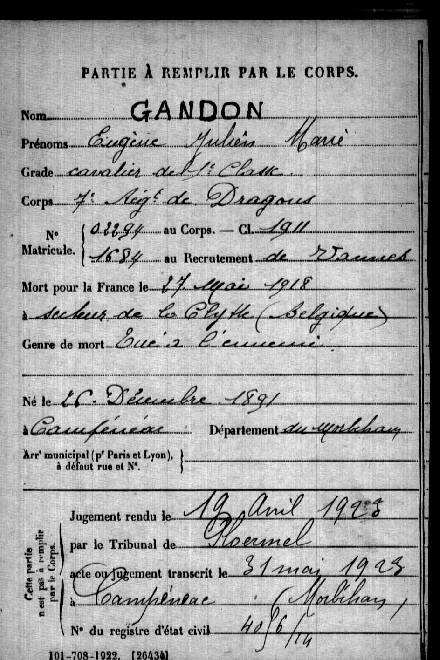 PARTIE À REMPLIR PAR LE CORPS.
Nom GANDON
Prénoms Eugène Julien Marie
Grade cavalier de 1e Classe
Corps 7e Régt de Dragons
N° Matricule. { 02294 au Corps. — Cl. 1911
1684 au Recrutement de Vannes
Mort pour la France le 27 Mai 1918
à secteur de la Clytte (Belgique)
Genre de mort Tué à l'ennemi
Né le 26 Décembre 1891
à Campénéac Département du Morbihan
Arrt municipal (pr Paris et Lyon),
à défaut rue et N°. }
Cette partie n'est pas à remplir par le Corps.
Jugement rendu le 19 Avril 1923
par le Tribunal de Ploermel
acte ou jugement transcrit le 31 mai 1923
à Campénéac (Morbihan)
N° du registre d'état civil
101-708-1922. [26434]